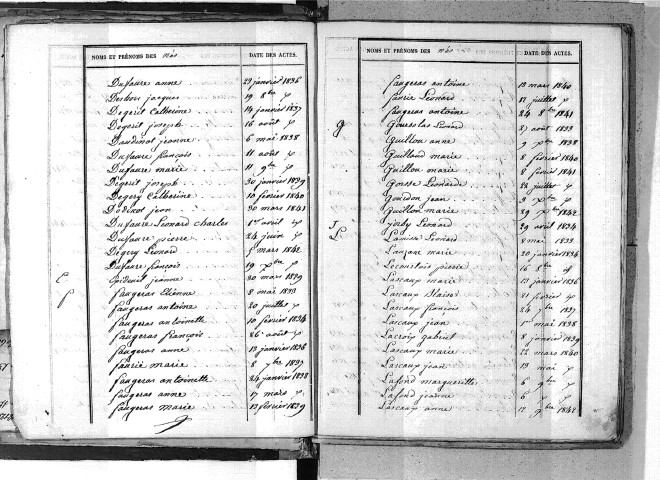 NOMS ET PRÉNOMS DES Nés DATE DES ACTES.
Dufaure anne 29 janvier 1836
Desbois jacques 19 8bre
Degerit Catherine 14 janvier 1837
Degerit joseph 16 août
Dardinot jeanne 6 mai 1838
Dufaure françois 11 août
Dufaure marie 11 9bre
Degerit joseph 30 janvier 1839
Degery Catherine 10 février 1840
Dodinot jean 30 mars 1841
Dufaure Léonard Charles 1er avril
Dufaure pierre 24 juin
Degery Léonard 5 mars 1842
Dufaure françois 19 Xbre
E
Epideuil jeanne 30 mars 1839
f
faugeras Etienne 8 mai 1833
faugeras antoine 20 juillet
faugeras antoinette 10 février 1834
faugeras françois 26 août
faugeras anne 13 janvier 1836
faurie marie 8 7bre 1837
faugeras antoinette 24 janvier 1838
faugeras anne 17 mars
faugeras marie 13 février 1839
NOMS ET PRÉNOMS DES Nés DATE DES ACTES.
faugeras antoine 13 mars 1840
faurie Léonard 17 juillet
faugeras antoine 24 8bre 1841
g
Gourselas Léonard 27 août 1833
Guillon anne 9 Xbre 1838
Guilland marie 8 février 1840
Guillon marie 8 février 1841
Gorsse Léonarde 22 juillet
Gourdon jean 3 Xbre
Guillon marie 29 Xbre 1842
J
Jorby Léonard 29 avril 1834
L
Lamisse Léonard 8 mai 1833
Lauzane marie 20 janvier 1834
Lecourtois pierre 16 8bre
Lascaux marie 13 janvier 1836
Lascaux blaise 21 février
Lascaux françois 24 7bre 1837
Lascaux jean 1er mai 1838
Lacroix gabriel 8 janvier 1839
Lascaux marie 22 mars 1840
Lascaux jean 19 mai
Lafond marguerite 6 9bre
Lafond jeanne 6
Lascaux anne 12 9bre 1842